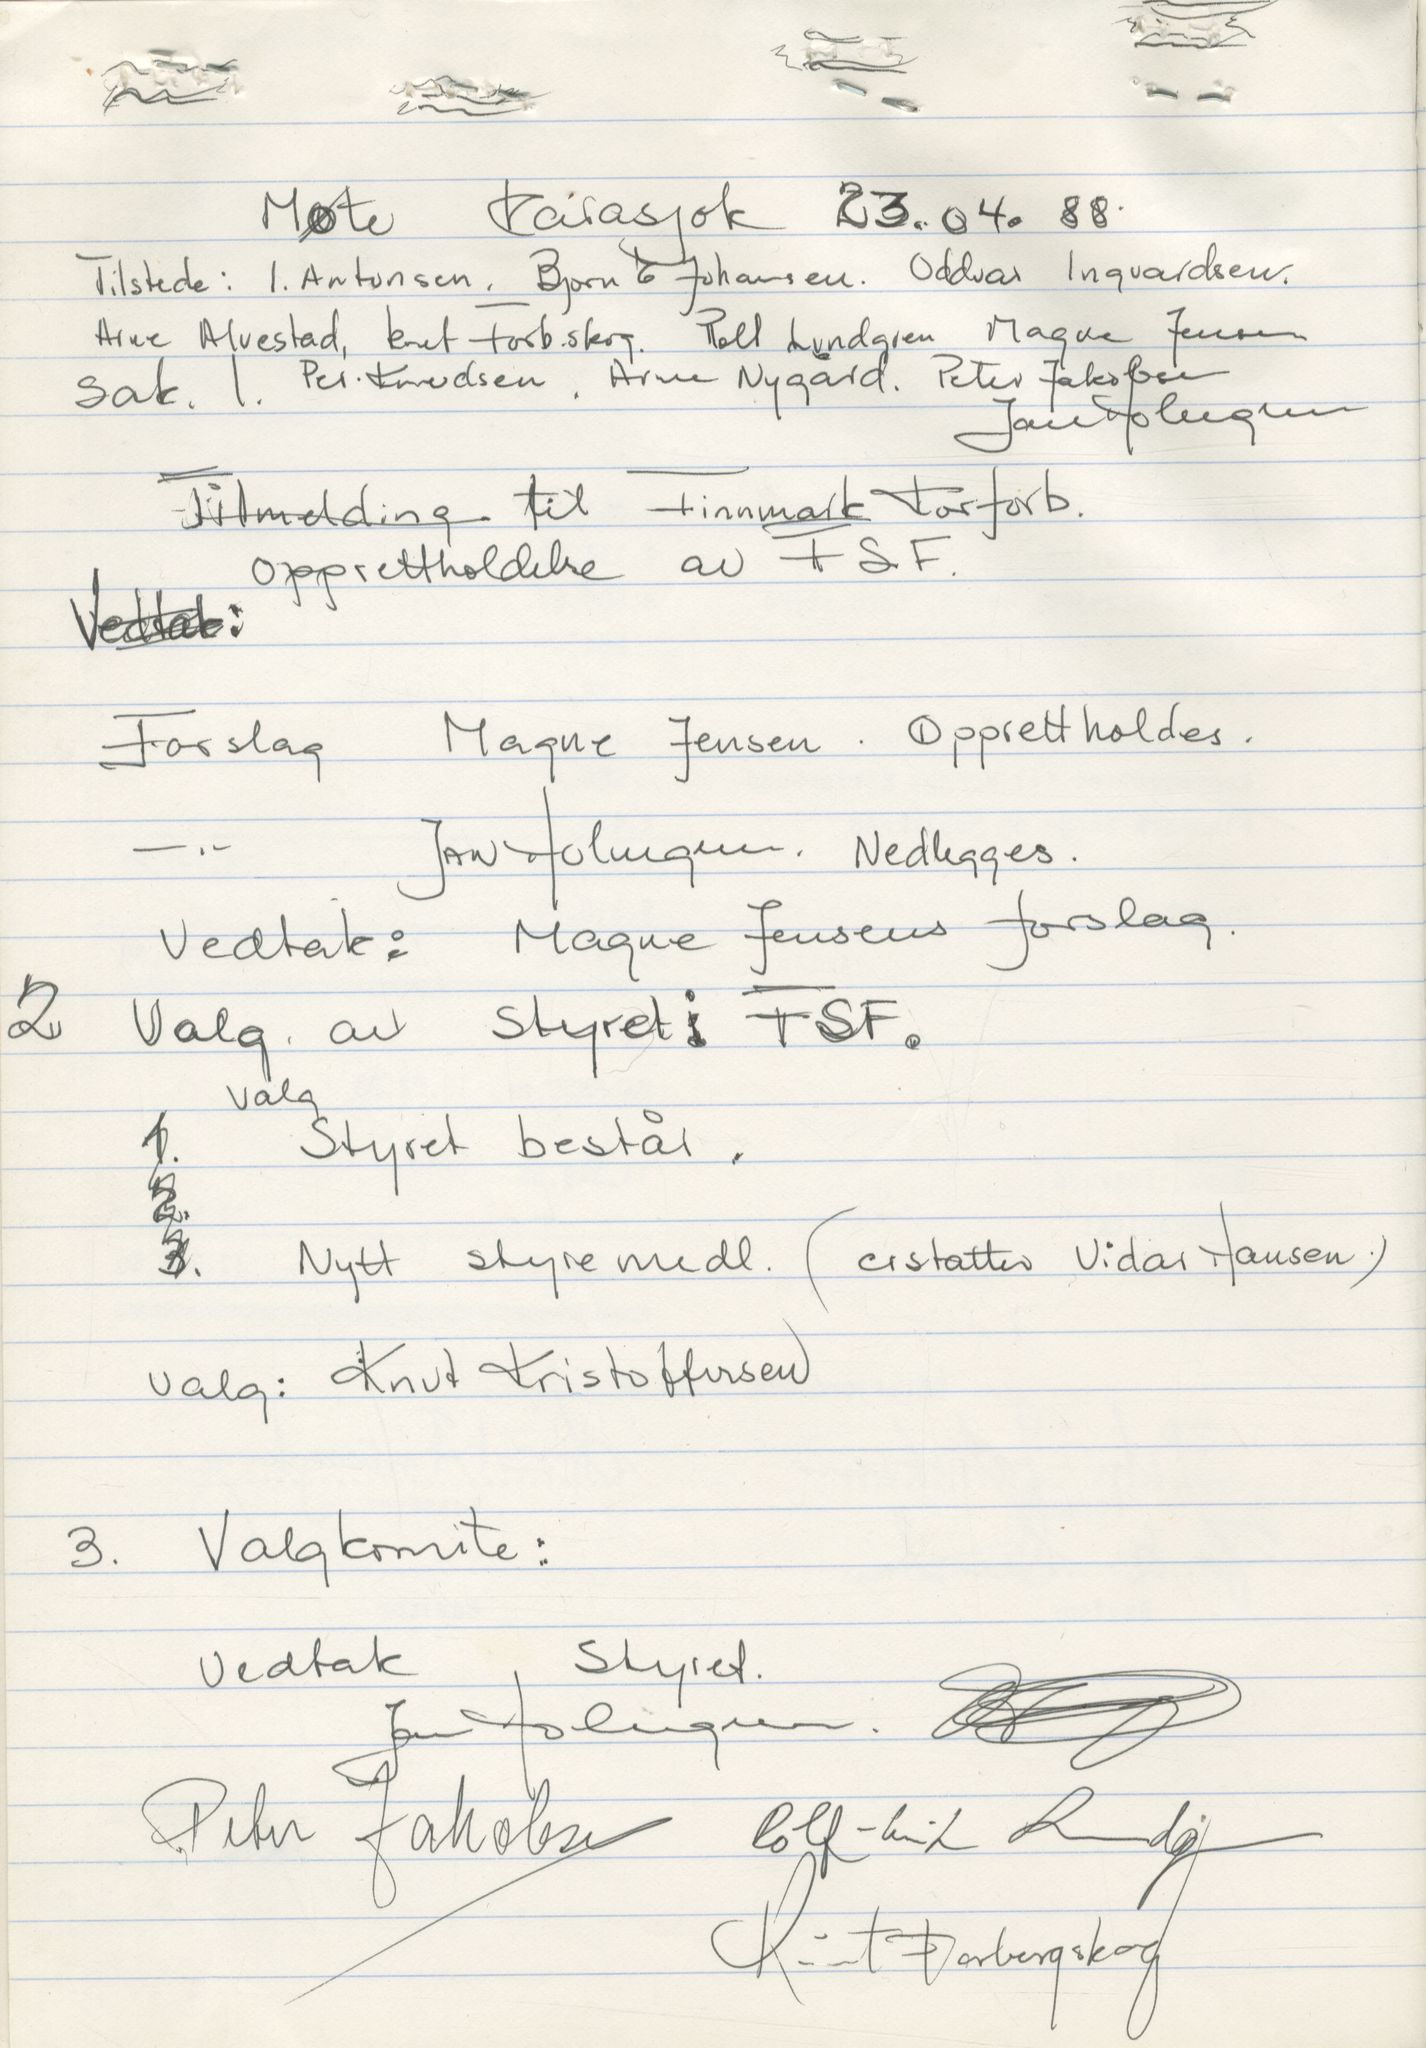 Møte Karasjok 23.04.88.
Tilstede: I. Antonsen. Bjørn E Johansen. Oddvar Ingvardsen.
Arne Alvestad, Knut Torb.skog. Rolf Lundgren Magne Jensen
Sak. 1. Per. Knudsen. Arne Nygård. Peter Jakobsen
Jan Holmgren
Tilmelding til Finnmark Korforb.
Opprettholdelse av FSF.
Vedtak:
Forslag Magne Jensen. Opprettholdes.
—"— Jan Holmgren. Nedlegges.
Vedtak: Magne Jensens forslag.
2 Valg. av styret: FSF.
Valg
1. Styret består.
2.
3. Nytt styremedl. (erstatter Vidar Hansen.)
Valg: Knut Kristoffersen
3. Valgkomite:
Vedtak Styret.
Jan Holmgren.
Peter Jakobsen Rolf
Knut Torbergskog